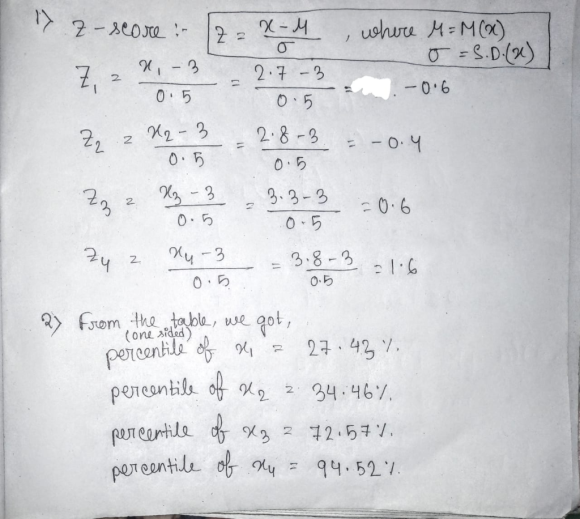 1) Z-score :- Z = x-μ/σ , where μ=M(x)
σ = S.D.(x)
Z₁ = x₁ - 3/0.5 = 2.7 - 3/0.5 = . -0.6
Z₂ = x₂ - 3/0.5 = 2.8 - 3/0.5 = -0.4
Z₃ = x₃ - 3/0.5 = 3.3 - 3/0.5 = 0.6
Z₄ = x₄ - 3/0.5 = 3.8 - 3/0.5 = 1.6
2) From the table, we got,
(one sided)
percentile of x₁ = 27.43 %.
percentile of x₂ = 34.46 %.
percentile of x₃ = 72.57 %.
percentile of x₄ = 94.52 %.